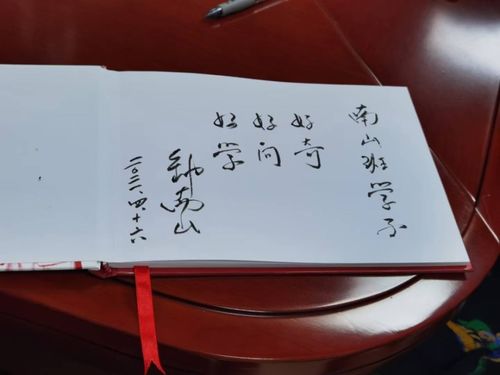 南山班学子
好奇
好问
好学
钟南山
二〇二一.四.十六